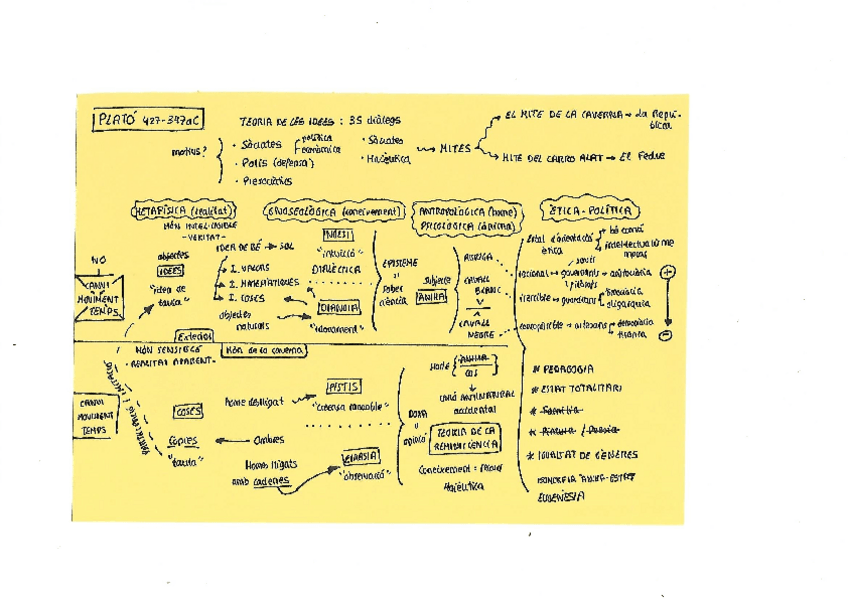 PLATÓ 427-347aC
TEORIA DE LES IDEES : 35 diàlegs
motius?
• Sòcrates
política
econòmica
• Polis (defensa)
• Presocràtics
• Sòcrates
• Maièutica
MITES
EL MITE DE LA CAVERNA → La Repú-
blica
MITE DEL CARRO ALAT → El Fedre
METAFÍSICA (realitat)
MÓN INTEL·LIGIBLE
-VERITAT-
GNOSEOLÒGICA (coneixement)
ANTROPOLÒGICA (home)
PSICOLÒGICA (ànima)
ÈTICA-POLÍTICA
NO
CANVI
MOVIMENT
TEMPS
objectes
IDEES
"idea de
taula"
IDEA DE BÉ → SOL
I. VALORS
I. MATEMÀTIQUES
I. COSES
objectes
naturals
NOESI
"intuïció"
DIALÈCTICA
DIANOIA
"raonament"
EPISTEME
saber
ciència
subjecte
ANIMA
AURIGA
CAVALL
BLANC
CAVALL
NEGRE
ètica
racional → governants → aristocràcia
irascible → guardians
oligarquia
concupiscible → artesans → democràcia
tirania
Exterior
MÓN SENSIBLE
-REALITAT APARENT-
Món de la caverna
CANVI
MOVIMENT
TEMPS
COSES
còpies
"taula"
Home deslligat
Ombres
Homes lligats
amb cadenes
PISTIS
"creença raonable"
"observació"
DOXA
opinió
Home
ÀNIMA
COS
unió ANTINATURAL
accidental
TEORIA DE LA
REMINISCÈNCIA
Coneixement = record
Maièutica
* PEDAGOGIA
* ESTAT TOTALITARI
* Família
* IGUALTAT DE GÈNERES
EUGENÈSIA